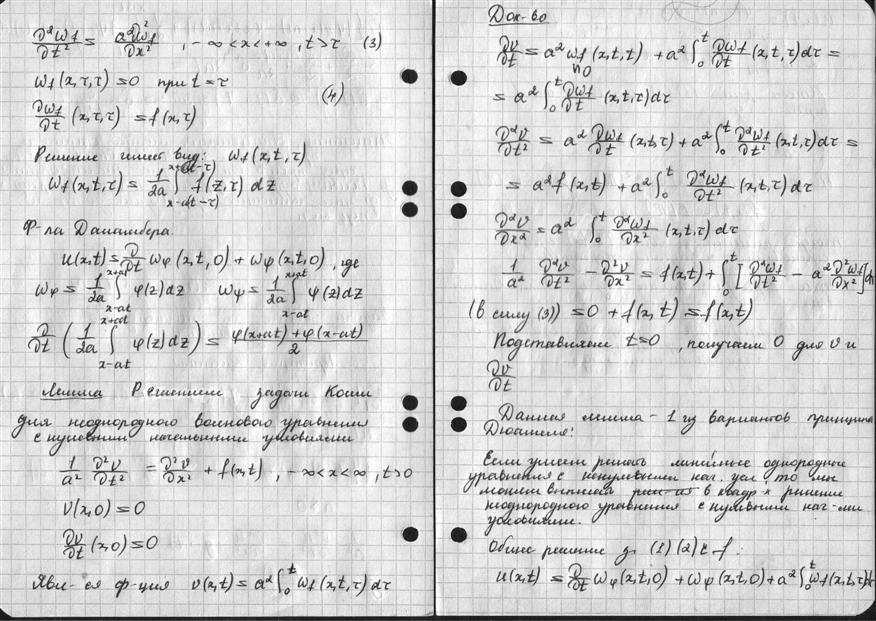 ∂²ω_f/∂t² = a²∂²ω_f/∂x² , -∞ < x < +∞ , t > τ (3)
ω_f(x,τ,τ) = 0 при t = τ
(4)
∂ω_f/∂t (x,τ,τ) = f(x,τ)
Решение имеет вид: ω_f(x,t,τ)
ω_f(x,t,τ) = 1/2a ∫_{x-a(t-τ)}^{x+a(t-τ)} f(z,τ) dz
Ф-ла Даламбера.
u(x,t) = ∂/∂t ω_φ(x,t,0) + ω_ψ(x,t,0) , где
ω_φ = 1/2a ∫_{x-at}^{x+at} φ(z)dz ω_ψ = 1/2a ∫_{x-at}^{x+at} ψ(z)dz
∂/∂t (1/2a ∫_{x-at}^{x+at} φ(z)dz) = φ(x+at)+φ(x-at)/2
Лемма Решением задачи Коши
для неоднородного волнового уравнения
с нулевыми начальными условиями
1/a² ∂²v/∂t² = ∂²v/∂x² + f(x,t) , -∞<x<∞ , t>0
v(x,0) = 0
∂v/∂t (x,0) = 0
явл-ся ф-ция v(x,t) = a² ∫_0^t ω_f(x,t,τ) dτ
Док-во
∂v/∂t = a² ω_f(x,t,t) + a² ∫_0^t ∂ω_f/∂t (x,t,τ)dτ =
= a² ∫_0^t ∂ω_f/∂t (x,t,τ)dτ
∂²v/∂t² = a² ∂ω_f/∂t (x,t,τ) + a² ∫_0^t ∂²ω_f/∂t² (x,t,τ)dτ =
= a² f(x,t) + a² ∫_0^t ∂²ω_f/∂t² (x,t,τ) dτ
∂²v/∂x² = a² ∫_0^t ∂²ω_f/∂x² (x,t,τ) dτ
1/a² ∂²v/∂t² - ∂²v/∂x² = f(x,t) + ∫_0^t [∂²ω_f/∂t² - a² ∂²ω_f/∂x²]dτ
(в силу (3)) = 0 + f(x,t) = f(x,t)
Подставляем t=0 , получаем 0 для v и
∂v/∂t
Данная лемма - 1 из вариантов принципа
Дюамеля:
Если умеем решать линейные однородные
уравнения с ненулевыми нач. усл то мы
можем в квадр-х решение
неоднородного уравнения с нулевыми нач-ми
условиями.
Общее решение (1) (2) с f.
u(x,t) = ∂/∂t ω_φ(x,t,0) + ω_ψ(x,t,0) + a² ∫_0^t ω_f(x,t,τ)dτ